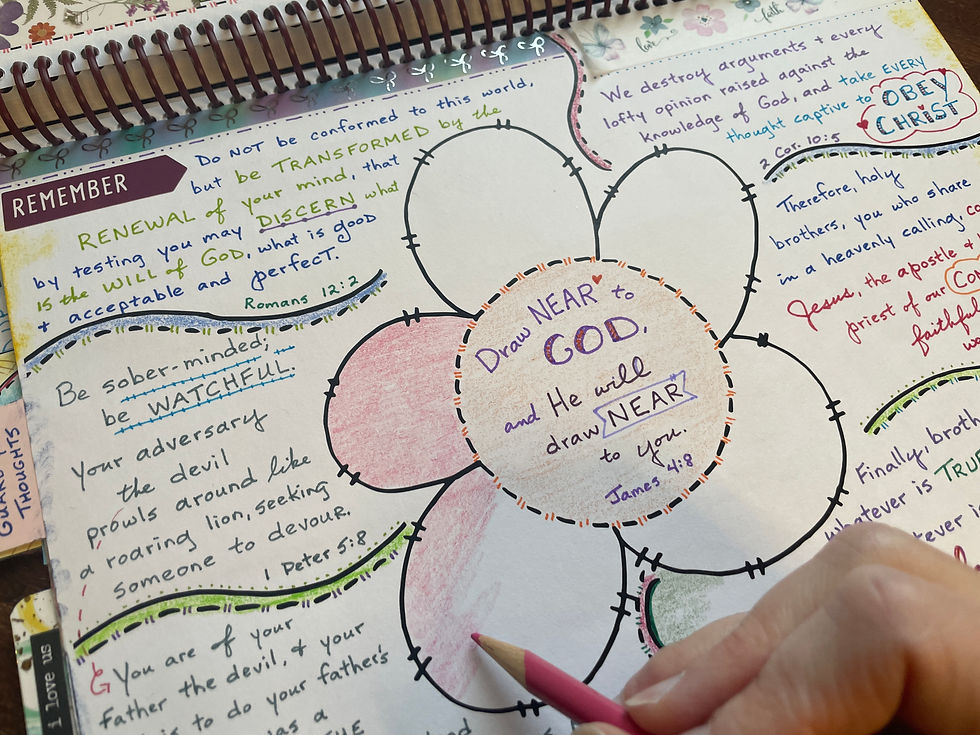 love
faith
REMEMBER
Do NOT be conformed to this world,
but be TRANSFORMED by the
RENEWAL of your mind, that
by testing you may DISCERN what
is the WILL of GOD, what is good
+ acceptable and perfect.
Romans 12:2
Be sober-minded;
be WATCHFUL.
Your adversary
the devil
prowls around like
a roaring lion, seeking
someone to devour.
1 Peter 5:8
You are of your
father the devil, & your
is to do your father's
as a
Draw NEAR to
GOD,
and He will
draw NEAR
to you.
James 4:8
We destroy arguments + every
lofty opinion raised against the
knowledge of God, and take EVERY
thought captive to OBEY
CHRIST
2 Cor. 10:5
Therefore, holy
brothers, you who share
in a heavenly calling,
Jesus, the apostle +
priest of our
faithful
Finally,
whatever is
THOUGHTS
i love us